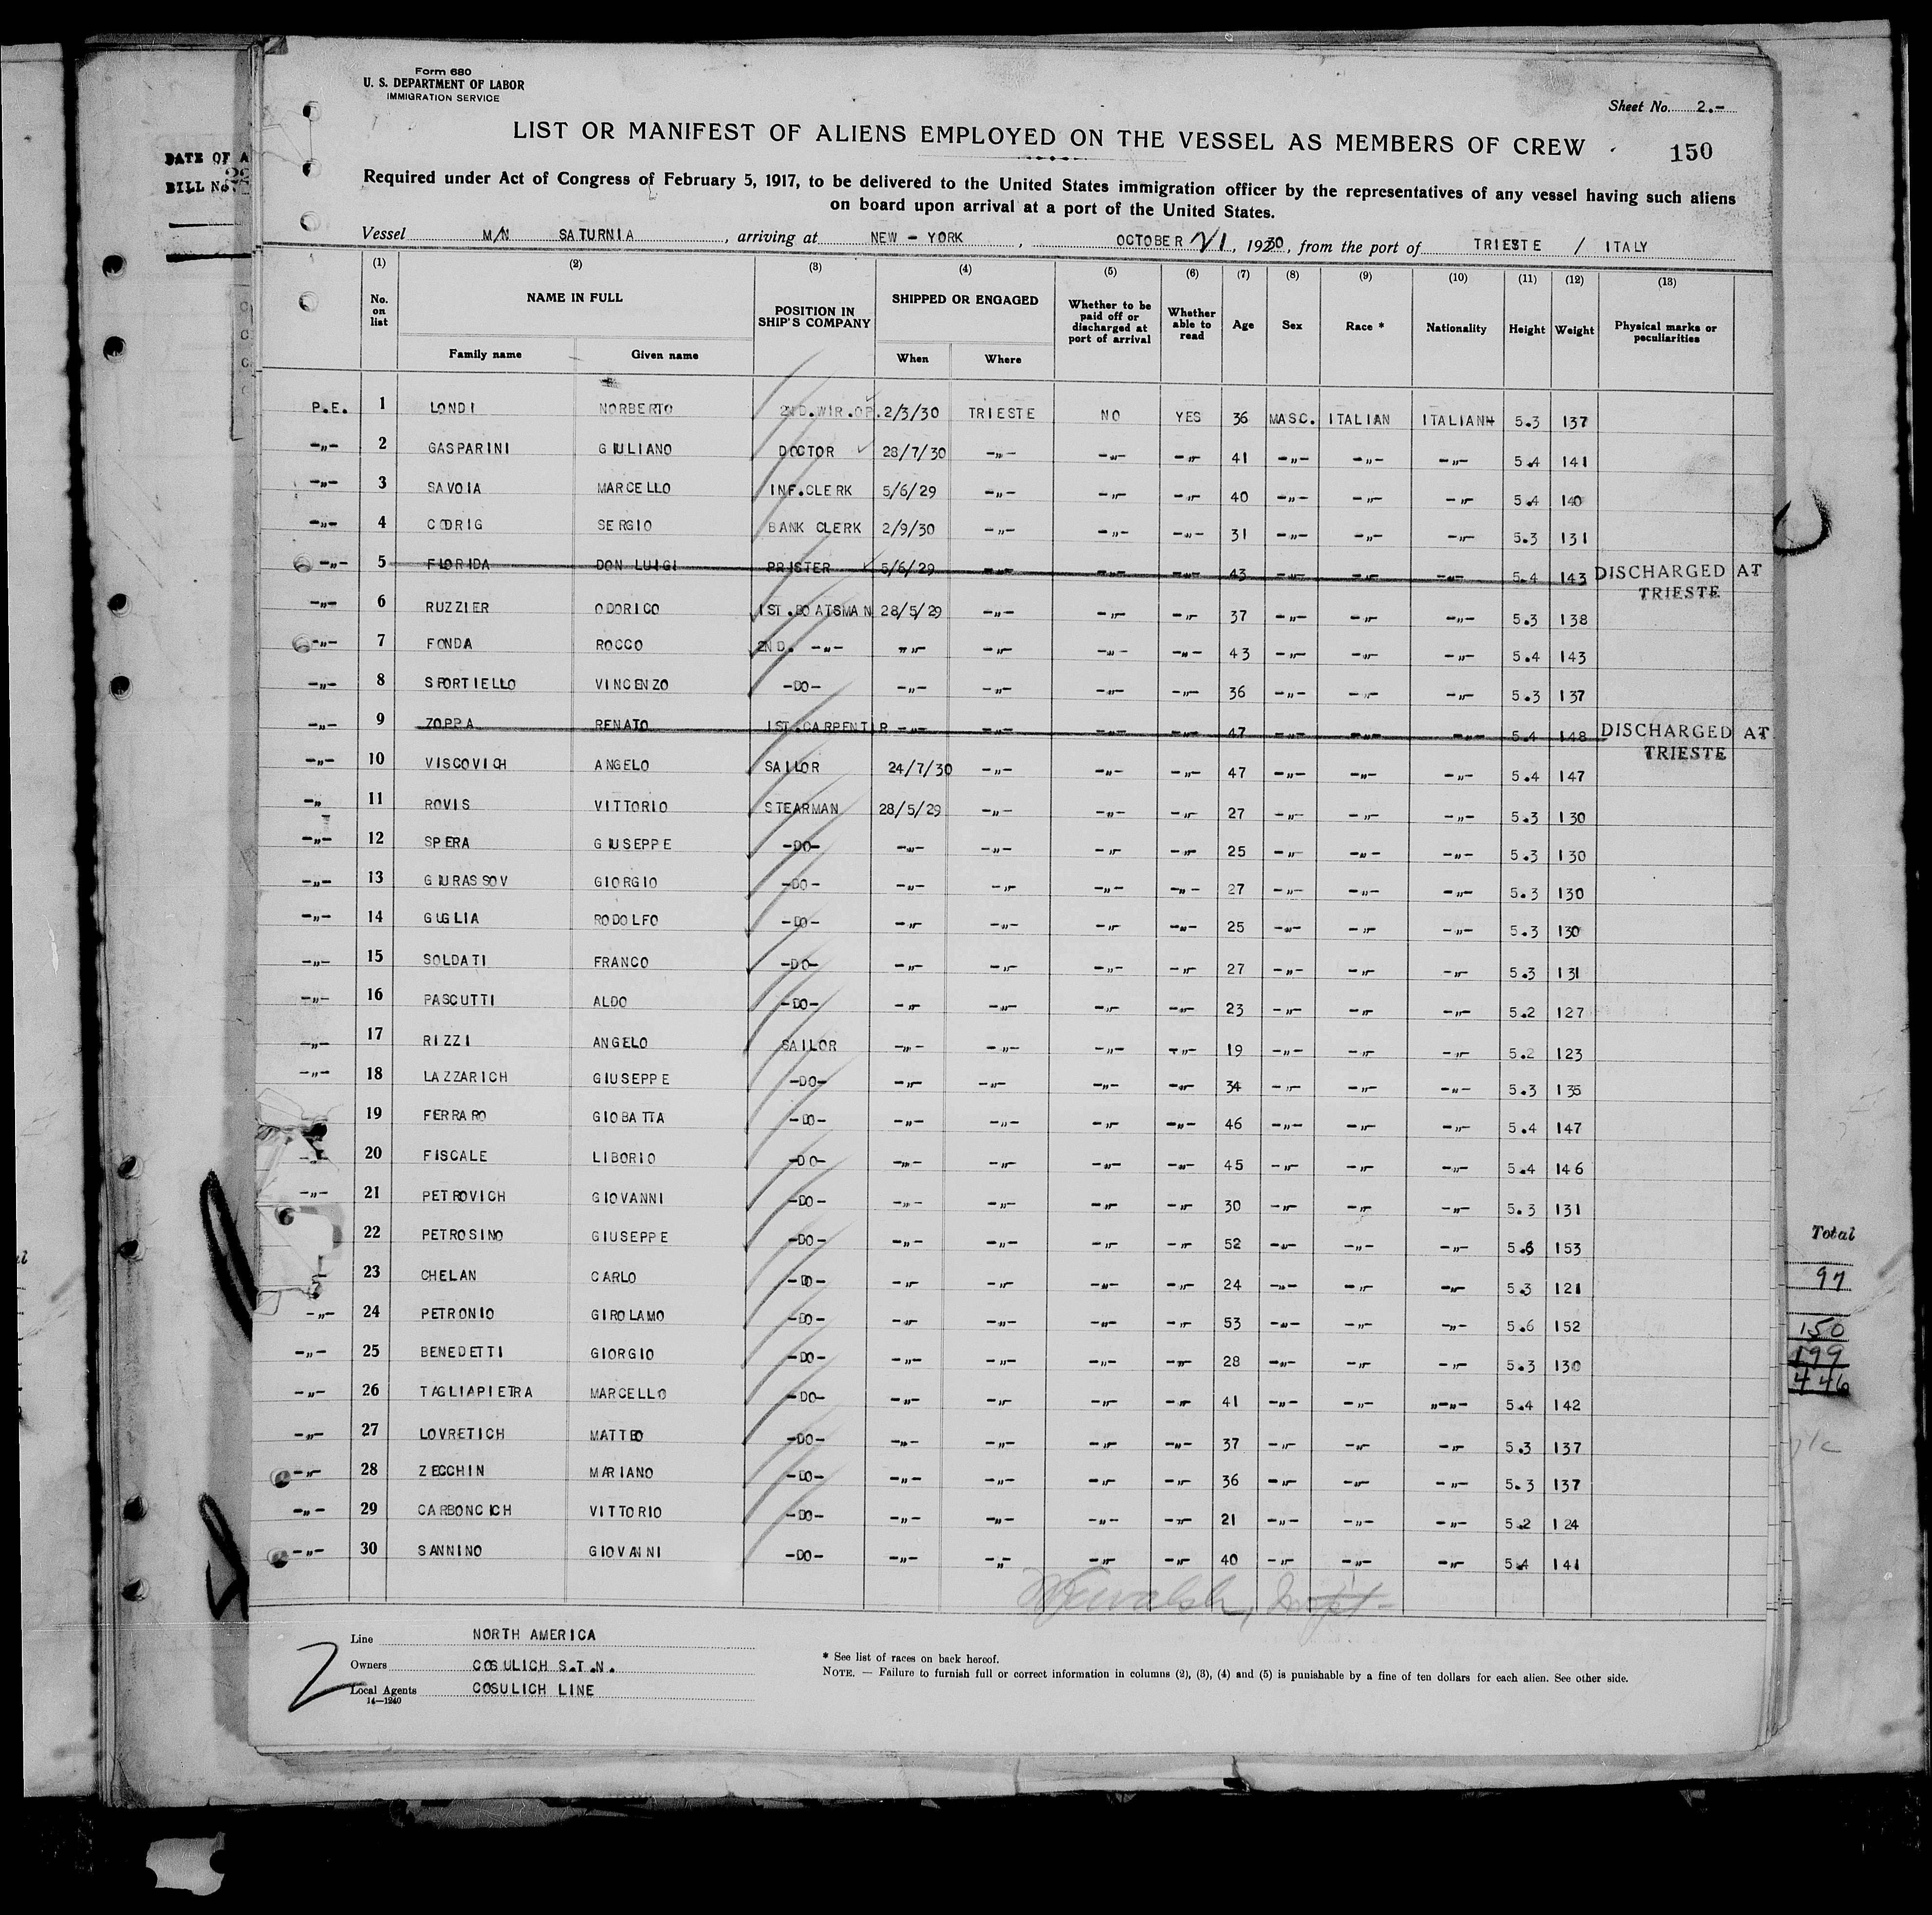 Form 680
U. S. DEPARTMENT OF LABOR
IMMIGRATION SERVICE
Sheet No. 2.-
LIST OR MANIFEST OF ALIENS EMPLOYED ON THE VESSEL AS MEMBERS OF CREW
150
DATE OF A
BILL No
Required under Act of Congress of February 5, 1917, to be delivered to the United States immigration officer by the representatives of any vessel having such aliens
on board upon arrival at a port of the United States.
Vessel M/N SATURNIA, arriving at NEW - YORK, OCTOBER 21, 1930, from the port of TRIESTE / ITALY
(1) (2) (3) (4) (5) (6) (7) (8) (9) (10) (11) (12) (13)
No. on list NAME IN FULL Family name Given name POSITION IN SHIP'S COMPANY SHIPPED OR ENGAGED When Where Whether to be paid off or discharged at port of arrival Whether able to read Age Sex Race * Nationality Height Weight Physical marks or peculiarities
P.E. 1 LONDI NORBERTO 2ND.WIR.OP. 2/3/30 TRIESTE NO YES 36 MASC. ITALIAN ITALIAN 5.3 137
-"- 2 GASPARINI GIULIANO DOCTOR 28/7/30 -"- -"- -"- 41 -"- -"- -"- 5.4 141
-"- 3 SAVOIA MARCELLO INF.CLERK 5/6/29 -"- -"- -"- 40 -"- -"- -"- 5.4 140
-"- 4 CODRIG SERGIO BANK CLERK 2/9/30 -"- -"- -"- 31 -"- -"- -"- 5.3 131
-"- 5 FLORIDA DON LUIGI PRISTER 5/6/29 -"- -"- -"- 43 -"- -"- -"- 5.4 143 DISCHARGED AT TRIESTE
-"- 6 RUZZIER ODORICO 1ST.BOATSMAN 28/5/29 -"- -"- -"- 37 -"- -"- -"- 5.3 138
-"- 7 FONDA ROCCO 2ND. -"- -"- -"- -"- -"- 43 -"- -"- -"- 5.4 143
-"- 8 SPORTIELLO VINCENZO -DO- -"- -"- -"- -"- 36 -"- -"- -"- 5.3 137
-"- 9 ZOPPA RENATO 1ST.CARPENTIR -"- -"- -"- -"- 47 -"- -"- -"- 5.4 148 DISCHARGED AT TRIESTE
-"- 10 VISCOVICH ANGELO SAILOR 24/7/30 -"- -"- -"- 47 -"- -"- -"- 5.4 147
-" 11 ROVIS VITTORIO STEARMAN 28/5/29 -"- -"- -"- 27 -"- -"- -"- 5.3 130
-"- 12 SPERA GIUSEPPE -DO- -"- -"- -"- -"- 25 -"- -"- -"- 5.3 130
-"- 13 GIURASSOV GIORGIO -DO- -"- -"- -"- -"- 27 -"- -"- -"- 5.3 130
-"- 14 GUGLIA RODOLFO -DO- -"- -"- -"- -"- 25 -"- -"- -"- 5.3 130
-"- 15 SOLDATI FRANCO -DO- -"- -"- -"- -"- 27 -"- -"- -"- 5.3 131
-"- 16 PASCUTTI ALDO -DO- -"- -"- -"- -"- 23 -"- -"- -"- 5.2 127
-"- 17 RIZZI ANGELO SAILOR -"- -"- -"- -"- 19 -"- -"- -"- 5.2 123
-"- 18 LAZZARICH GIUSEPPE -DO- -"- -"- -"- -"- 34 -"- -"- -"- 5.3 135
19 FERRARO GIOBATTA -DO- -"- -"- -"- -"- 46 -"- -"- -"- 5.4 147
-"- 20 FISCALE LIBORIO -DO- -"- -"- -"- -"- 45 -"- -"- -"- 5.4 146
-"- 21 PETROVICH GIOVANNI -DO- -"- -"- -"- -"- 30 -"- -"- -"- 5.3 131
22 PETROSINO GIUSEPPE -DO- -"- -"- -"- -"- 52 -"- -"- -"- 5.6 153
23 CHELAN CARLO -DO- -"- -"- -"- -"- 24 -"- -"- -"- 5.3 121
-"- 24 PETRONIO GIROLAMO -DO- -"- -"- -"- -"- 53 -"- -"- -"- 5.6 152
-"- 25 BENEDETTI GIORGIO -DO- -"- -"- -"- -"- 28 -"- -"- -"- 5.3 130
-"- 26 TAGLIAPIETRA MARCELLO -DO- -"- -"- -"- -"- 41 -"- -"- "-"- 5.4 142
-"- 27 LOVRETICH MATTEO -DO- -"- -"- -"- -"- 37 -"- -"- -"- 5.3 137
-"- 28 ZECCHIN MARIANO -DO- -"- -"- -"- -"- 36 -"- -"- -"- 5.3 137
-"- 29 CARBONCICH VITTORIO -DO- -"- -"- -"- -"- 21 -"- -"- -"- 5.2 124
-"- 30 SANNINO GIOVANNI -DO- -"- -"- -"- -"- 40 -"- -"- -"- 5.4 141
Total
97
150
199
446
Line NORTH AMERICA
Owners COSULICH S.T.N.
Local Agents COSULICH LINE
14—1240
2
* See list of races on back hereof.
NOTE. — Failure to furnish full or correct information in columns (2), (3), (4) and (5) is punishable by a fine of ten dollars for each alien. See other side.